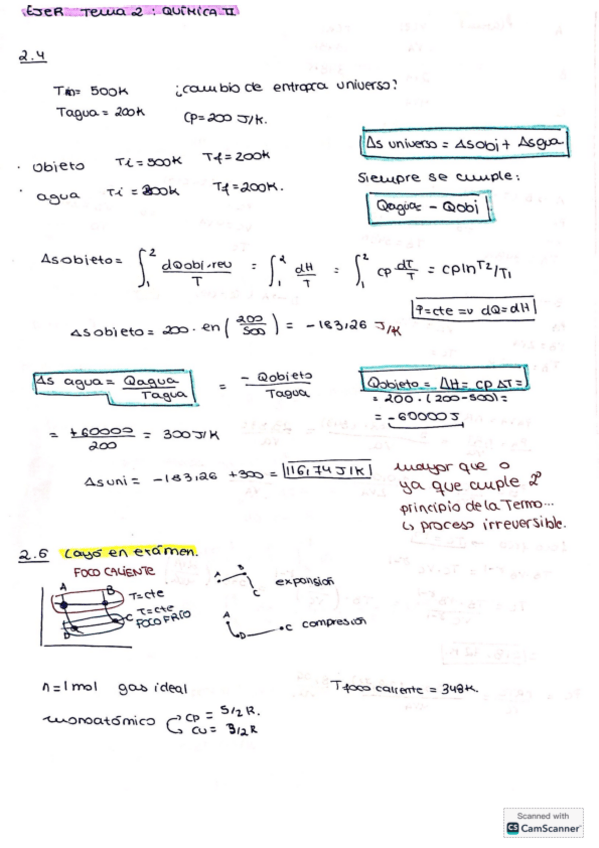 EJER Tema 2: QUÍMICA II
2.4
T = 500K ¿cambio de entropía universo?
Tagua = 200K Cp=200 J/K.
Δs universo = Δsobj + Δsgua
· objeto Ti = 500K Tf = 200K
siempre se cumple:
· agua Ti = 200K Tf = 200K.
Qagua - Qobj
Δsobjeto = ∫₁² dQobj.rev / T = ∫₁² dH / T = ∫₁² cp dT/T = cp ln T2/T1
P=cte =v dQ=dH
Δsobjeto = 200 · en (200/500) = -183,26 J/K
Δs agua = Qagua / Tagua = - Qobjeto / Tagua
Qobjeto = ΔH = cp ΔT =
= 200 · (200-500) =
= -60000 J
= +60000 / 200 = 300 J/K
Δsuni = -183,26 +300 = 116,74 J/K
mayor que 0
ya que cumple 2º
principio de la Termo...
↳ proceso irreversible.
2.6 cayó en exámen.
FOCO CALIENTE
A B T=cte
C T=cte
FOCO FRIO
D
A B C expansión
A D C compresión
n=1mol gas ideal
T foco caliente = 348K.
monoatómico cp = 5/2 R.
cv = 3/2 R
Scanned with
CS CamScanner